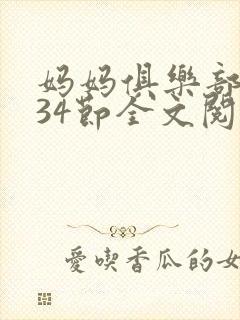 妈妈俱樂部
34節全文閱
愛喫香瓜的女